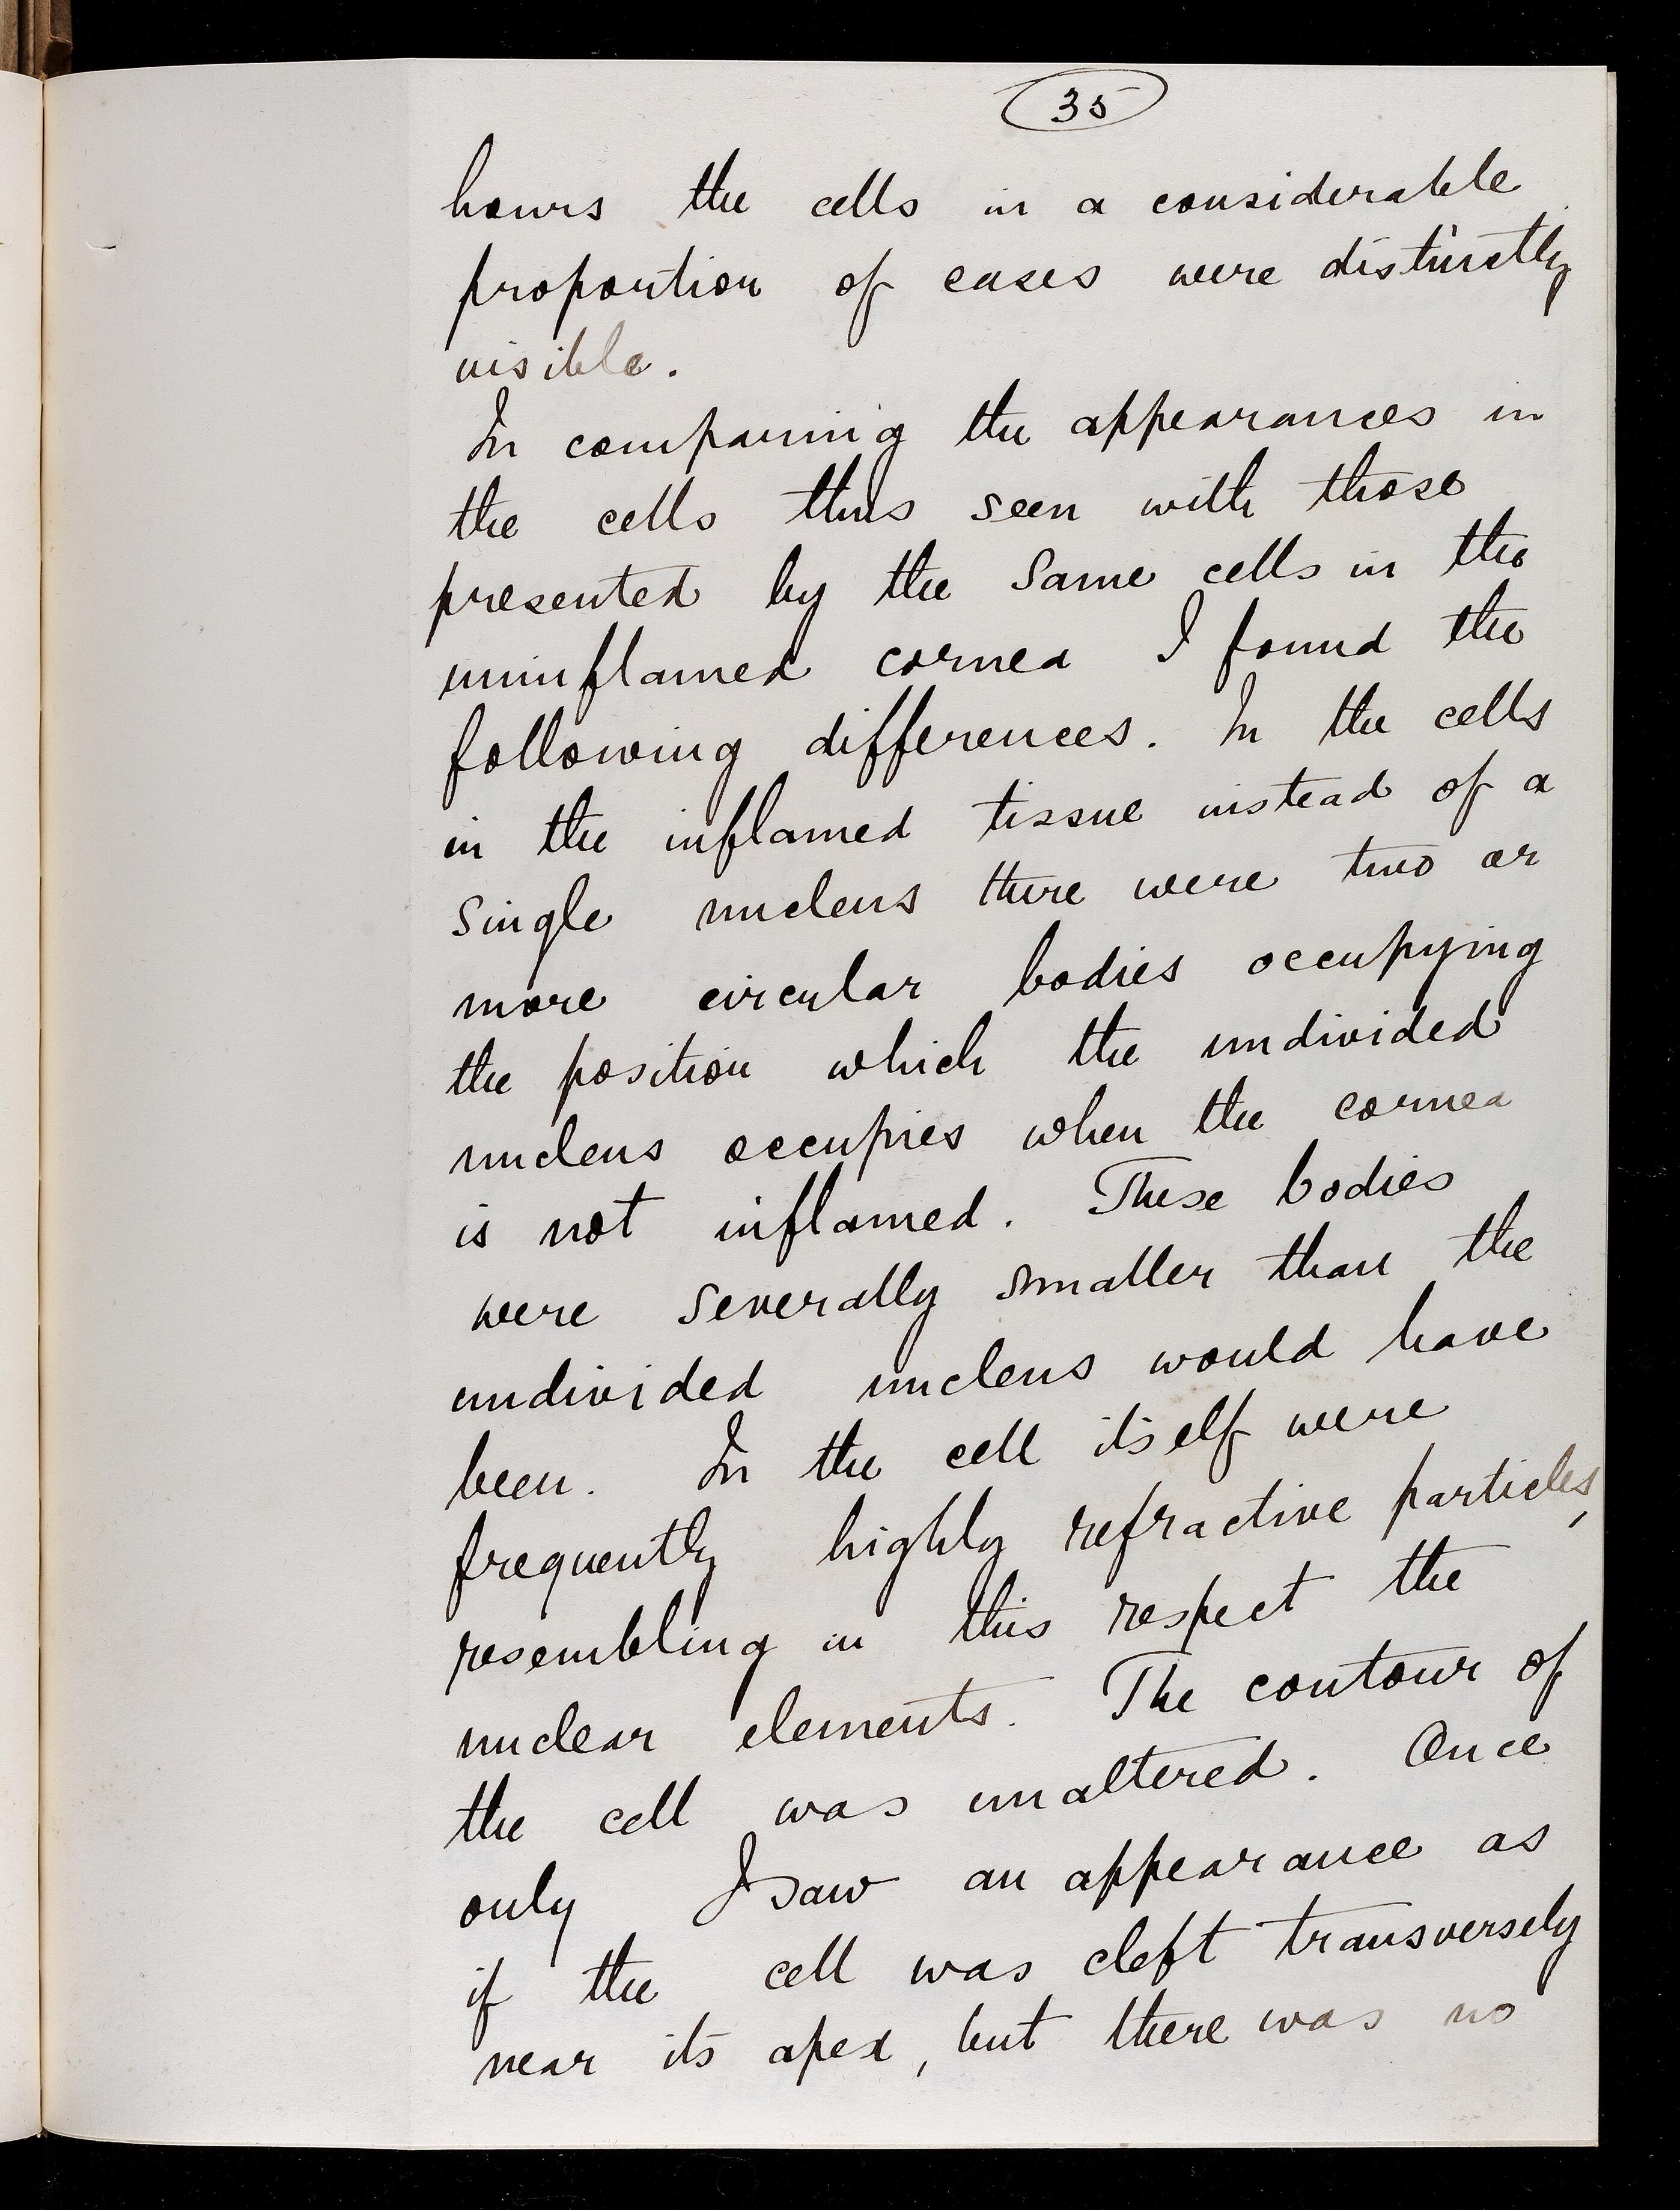 35
hours the cells in a considerable
proportion of cases were distinctly
visible.
In comparing the appearances in
the cells thus seen with those
presented by the same cells in the
uninflamed cornea I found the
following differences. In the cells
in the inflamed tissue instead of a
single nucleus there were two or
more circular bodies occupying
the position which the undivided
nucleus occupies when the cornea
is not inflamed. These bodies
were severally smaller than the
undivided nucleus would have
been. In the cell itself were
frequently highly refractive particles,
resembling in this respect the
nuclear elements. The contour of
the cell was unaltered. Once
only I saw an appearance as
if the cell was cleft transversely
near its apex, but there was no